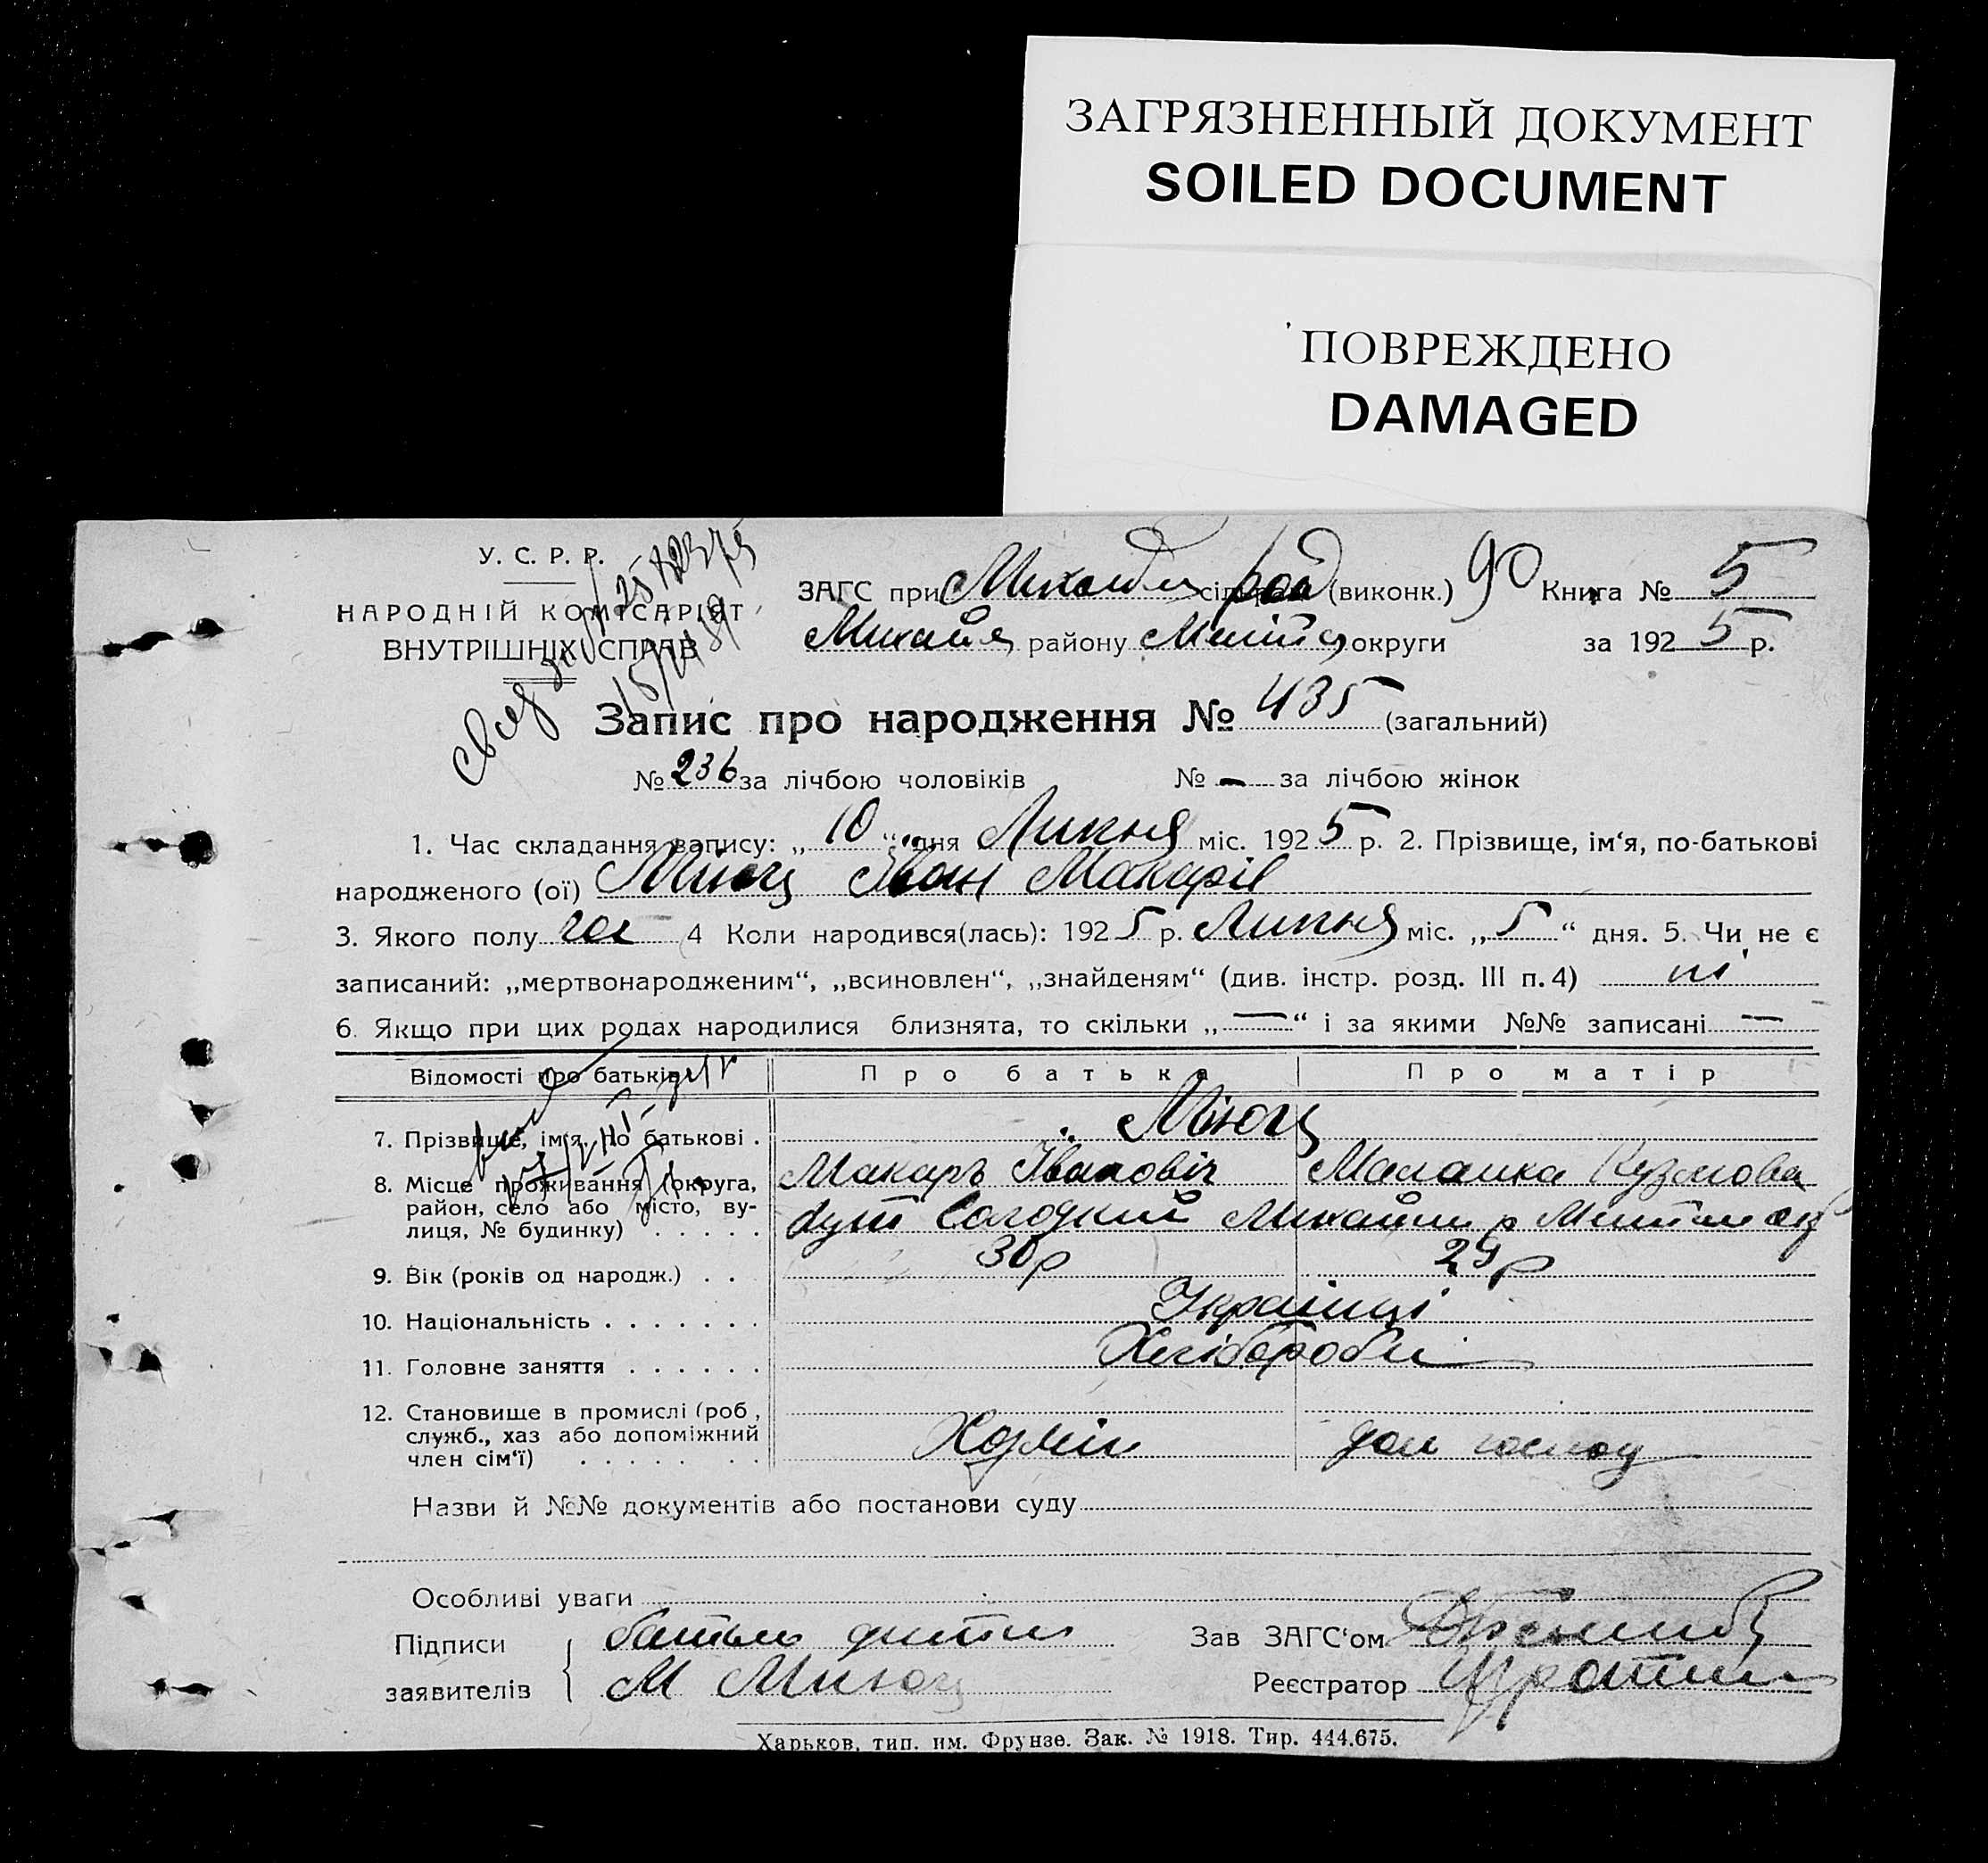 ЗАГРЯЗНЕННЫЙ ДОКУМЕНТ
SOILED DOCUMENT
ПОВРЕЖДЕНО
DAMAGED
У. С. Р. Р.
НАРОДНІЙ КОМІСАРІЯТ
ВНУТРІШНІХ СПРАВ
ЗАГС при сільрад (виконк.) 90 Книга № 5
району округи за 1925 р.
Запис про народження № 435 (загальний)
№ 236 за лічбою чоловіків № — за лічбою жінок
1. Час складання запису: „10“ дня Липня міс. 1925 р. 2. Прізвище, ім‘я, по-батькові
народженого (ої) Іван Макарів
3. Якого полу чол 4 Коли народився(лась): 1925 р. Липня міс. „5“ дня. 5. Чи не є
записаний: „мертвонародженим“, „всиновлен“, „знайденям“ (див. інстр. розд. III п. 4) ні
6. Якщо при цих родах народилися близнята, то скільки „—“ і за якими №№ записані —
Відомості про батьків Про батька Про матір
7. Прізвище, ім‘я, по батькові .
Макаръ Іванович Маланка Кузмова
8. Місце проживання (округа,
район, село або місто, ву-
лиця, № будинку) . . . . .
9. Вік (років од народж.) . . 30 р 29 р
10. Національність . . . . . . . Українці
11. Головне заняття . . . . . . Хлібороби
12. Становище в промислі (роб,
служб., хаз або допоміжний
член сім‘ї) . . . . . . . Хазяїн дом господ
Назви й №№ документів або постанови суду
Особливі уваги
Підписи батько дитини Зав ЗАГС‘ом
заявителів М Реєстратор
Харьков, тип. им. Фрунзе. Зак. № 1918. Тир. 444.675.